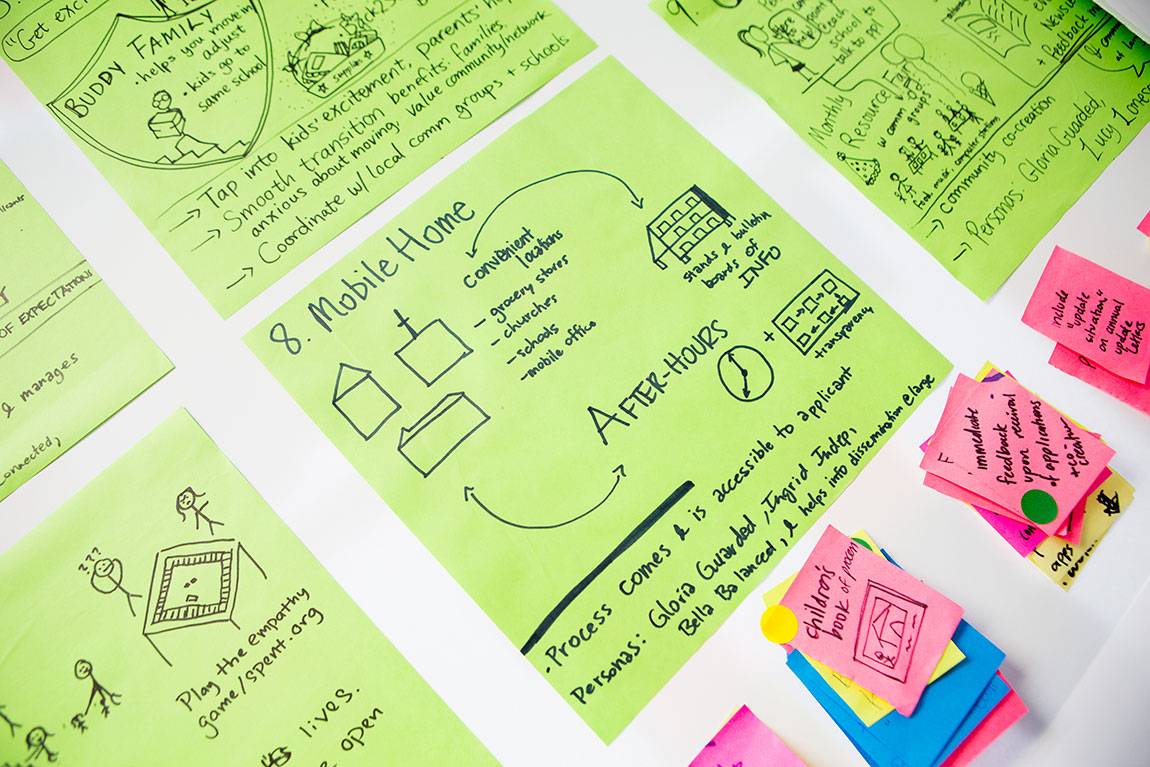 "Get exci
BUDDY FAMILY
· helps you move in
adjust
· kids go to
same school
supplies
→ Tap into kids' excitement, parents'
→ Smooth transition benefits families
anxious about moving. Value community/network
→ Coordinate w/ local comm groups + schools
9.
school to
talk to ppl
Monthly
Resource
w/ comm
groups
Food, music, computer
+
Feedback
→ community co-creation
→ Personas: Gloria Guarded,
Lucy Lonesome
OF EXPECTATIONS
& manages
connected,
8. Mobile Home
convenient
locations
- grocery stores
- churches
- schools
- mobile office
stands & bulletin
boards of
INFO
AFTER-HOURS
+
+transparency
· Process comes & is accessible to applicant
Personas: Gloria Guarded, Ingrid Indep,
Bella Balanced, & helps info dissemination @ large
???
Play the empathy
game/spent.org
lives.
open
include
"update
situation"
on annual
update
letters
immediate
feedback
upon receival
of applications
apps
children's
book of process